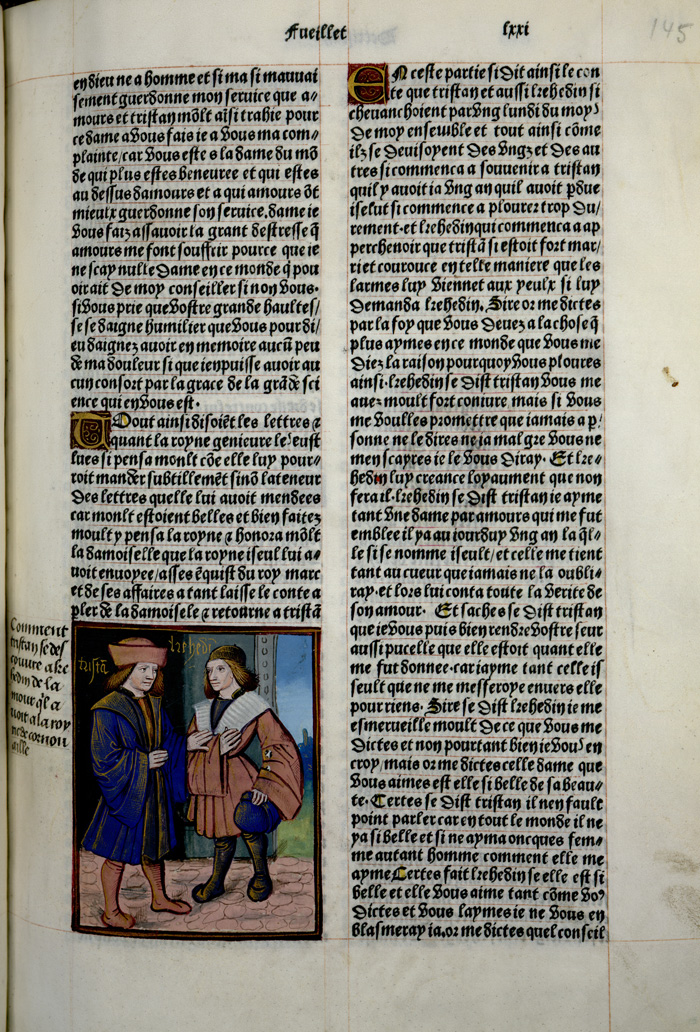 Fueillet lxxi
145
en dieu ne a homme et si ma si mauuai
sement guerdonne mon seruice que a⸗
mours et tristan mõlt aĩsi trahie pour
ce dame a vous fais ie a vous ma com⸗
plainte/car vous estes la dame du mõ
de qui plus estes beneuree et qui estes
au dessus damours et a qui amours õt
mieulx guerdonne son seruice.dame ie
vous faiz assauoir la grant destresse q̃
amours me font souffrir pource que ie
ne scay nulle dame en ce monde q̃ pou
oirait de moy conseiller si non vous.
si vous prie que vostre grande haultes/
se se daigne humilier que vous pour di/
eu daignez auoir en memoire aucũ peu
de ma douleur si que ien puisse auoir au
cun confort par la grace de la grãde sci
ence qui en vous est.
Tout ainsi disoiẽt les lettres ⁊
quant la royne genieure le' eust
lues si pensa monlt cõe elle luy pour⸗
roit mander subtillemẽt sinõ la teneur
des lettres quelle lui auoit mendees
car monlt estoient belles et bien faitez
moult y pensa la royne ⁊ honora mõlt
la damoiselle que la royne iseul lui a⸗
uoit enuoyee/asses ẽquist du roy marc
et de ses affaires a tant laisse le conte a
pler de la damoisele ⁊ retourne a tristã
Comment
tristan se des
couure a ke
hedin de la
mour q'l a
uoit a la roy
ne de cornou
aille
tristã
krehedĩ
EN ceste partie si dit ainsi le con
te que tristan et aussi krehedin si
cheuanchoient par vng lundi du moy'
de moy ensemble et tout ainsi cõme
ilz se deuisoyent des vngz et des au
tres si commenca a souuenir a tristan
quil y auoit ia vng an quil auoit p̃due
iselut si commence a plourer trop du/
rement.et krehedin qui commenca a ap
perchenoir que tristã si estoit fort mar/
ri et courouce en telle maniere que les
larmes luy viennet aux yeulx si luy
demanda krehedin. Sire or me dictes
par la foy que vous deuez a la chose q̃
plus aymes en ce monde que vous me
diez la raison pourquoy vous ploures
ainsi.krehedin se dist tristan vous me
auez moult fort coniure mais si vous
me voulles promettre que iamais a p̲
sonne ne le dires ne ia mal gre vous ne
men scayres ie le vous diray. Et kre⸗
hedin luy creance loyaument que non
fera il.krehedin se dist tristan ie ayme
tant vne dame par amours qui me fut
emblee il ya au iourduy vng an la q̃l⸗
le si se nomme iseult/et celle me tient
tant au cueur que iamais ne la oubli⸗
ray.et lors lui conta toute la verite de
son amour. Et saches se dist tristan
que ie vous puis bien rendre vostre seur
aussi pucelle que elle estoit quant elle
me fut donnee.car iayme tant celle is
seult que ne me messeroye enuers elle
pour riens. Sire se dist krehedin ie me
esmerueille moult de ce que vous me
dictes et non pourtant bien ie vou' en
croy/mais or me dictes celle dame que
vous aimes est elle si belle de sa beau⸗
te. Certes se dist tristan il nen faule
point parler car en tout le monde il ne
ya si belle et si ne ayma oncques fem⸗
me autant homme comment elle me
ayme Certes fait krehedin se elle est si
belle et elle vous aime tant cõme vo'
dictes et vous laymes ie ne vous en
blasmeray ia.or me dictes quel conseil